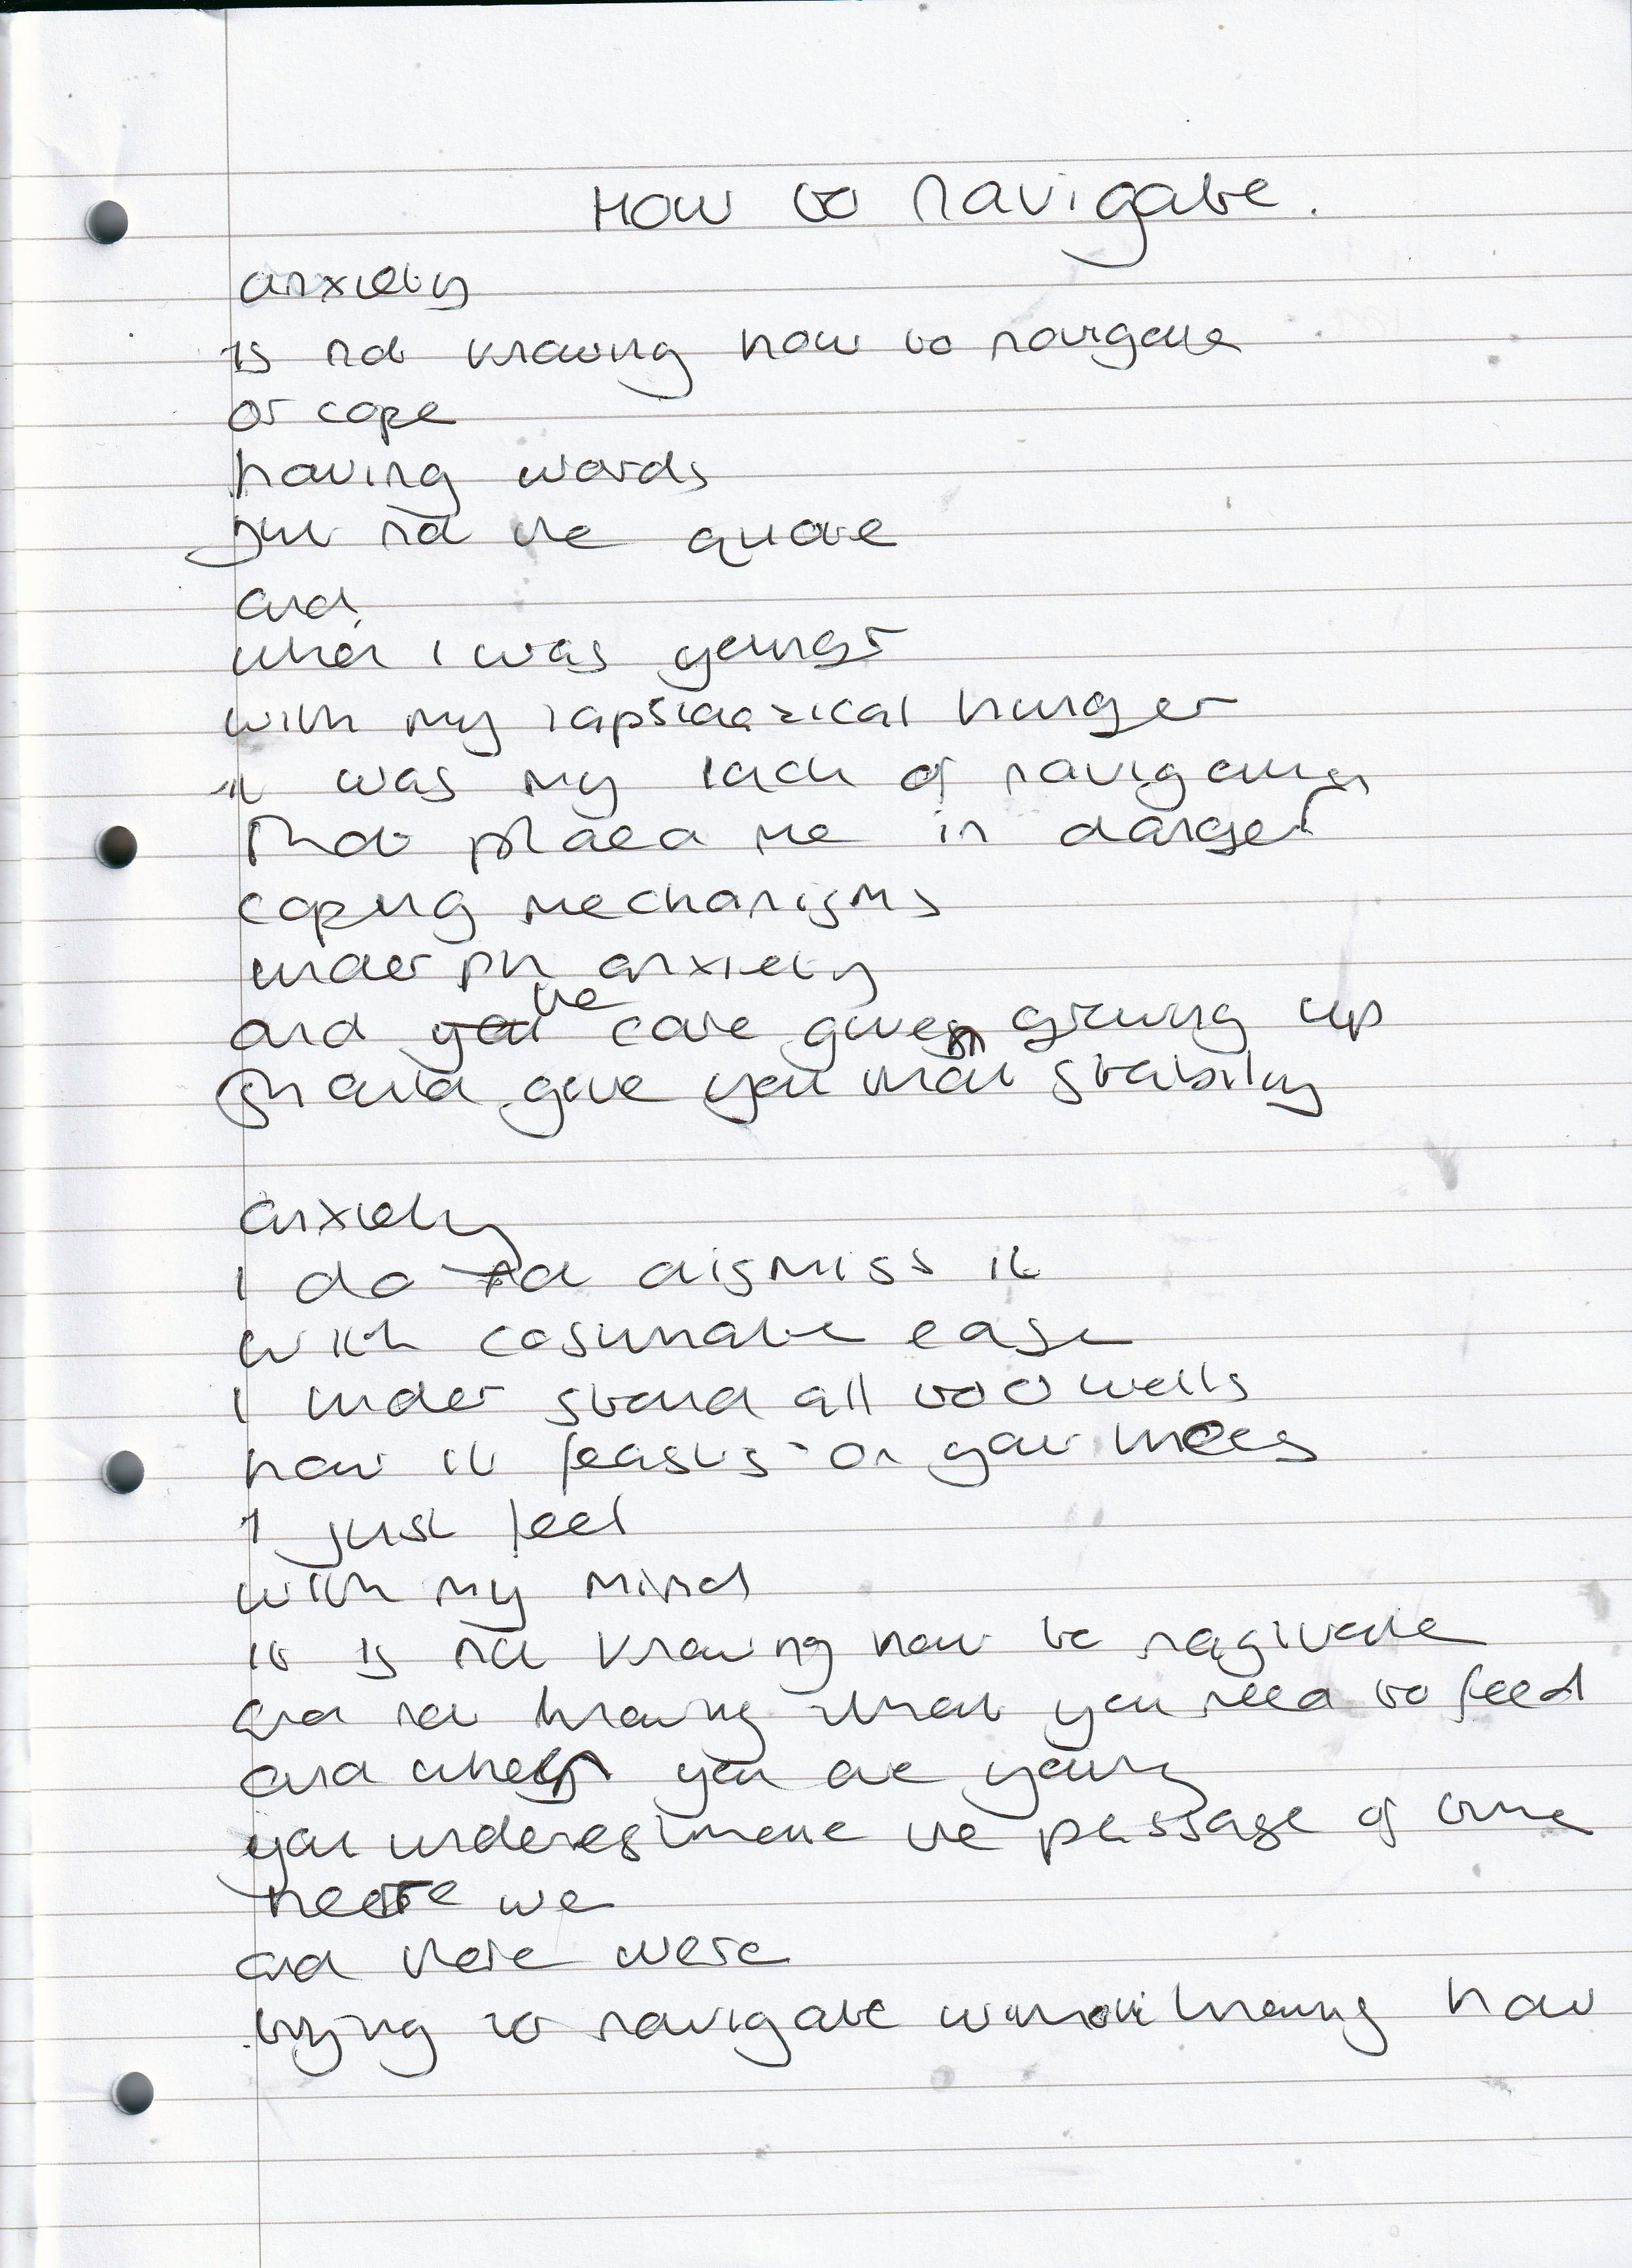 How to navigate.
anxiety
is not knowing how to navigate
or cope
having words
just not the quote
and
when I was younger
with my hunger
it was my lack of navigation
that placed me in danger
coping mechanisms
under pin anxiety
and the care given growing up
should give you that stability
anxiety
I do not dismiss it
with ease
I under stand all too well
how it feasts on your
I just feel
with my mind
it is not knowing how to nagivate
and not knowing what you need to feed
and when you are young
you underestimate the passage of time
here we
and there were
trying to navigate without knowing how